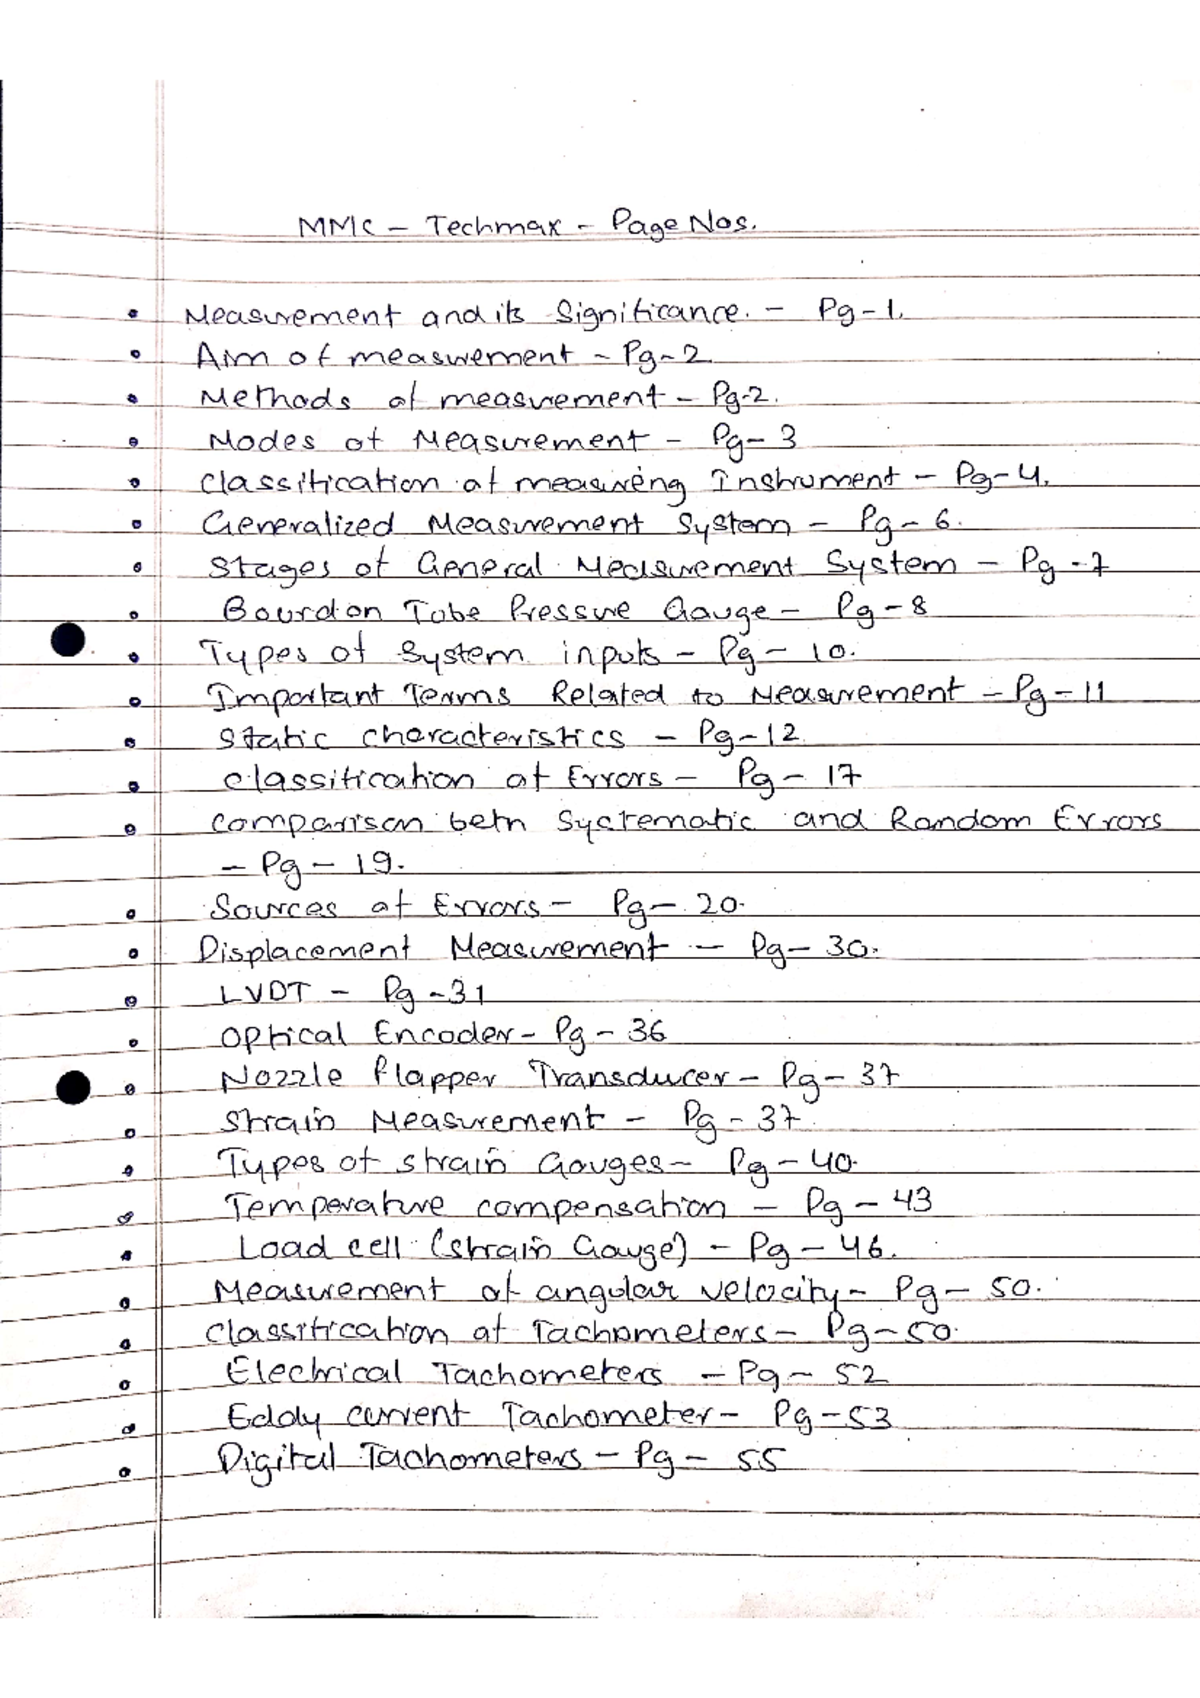 MMC - Techmax - Page Nos.
Measurement and its Significance. - Pg-1.
Aim of measurement - Pg-2.
Methods of measurement - Pg-2.
Modes of Measurement - Pg-3
Classification of measuring Instrument - Pg-4.
Generalized Measurement System - Pg-6.
Stages of General Measurement System - Pg-7
Bourdon Tube Pressure Gauge - Pg-8
Types of System inputs - Pg-10.
Important Terms Related to Measurement - Pg-11
Static characteristics - Pg-12
classification of Errors - Pg-17
comparison betn Systematic and Random Errors
- Pg-19.
Sources of Errors - Pg-20.
Displacement Measurement - Pg-30.
LVDT - Pg-31
Optical Encoder - Pg-36
Nozzle flapper Transducer - Pg-37
Strain Measurement - Pg-37
Types of strain Gauges - Pg-40.
Temperature compensation - Pg-43
Load cell (strain Gauge) - Pg-46.
Measurement of angular velocity - Pg-50.
Classification of Tachometers - Pg-50.
Electrical Tachometers - Pg-52
Eddy current Tachometer - Pg-53
Digital Tachometers - Pg-55